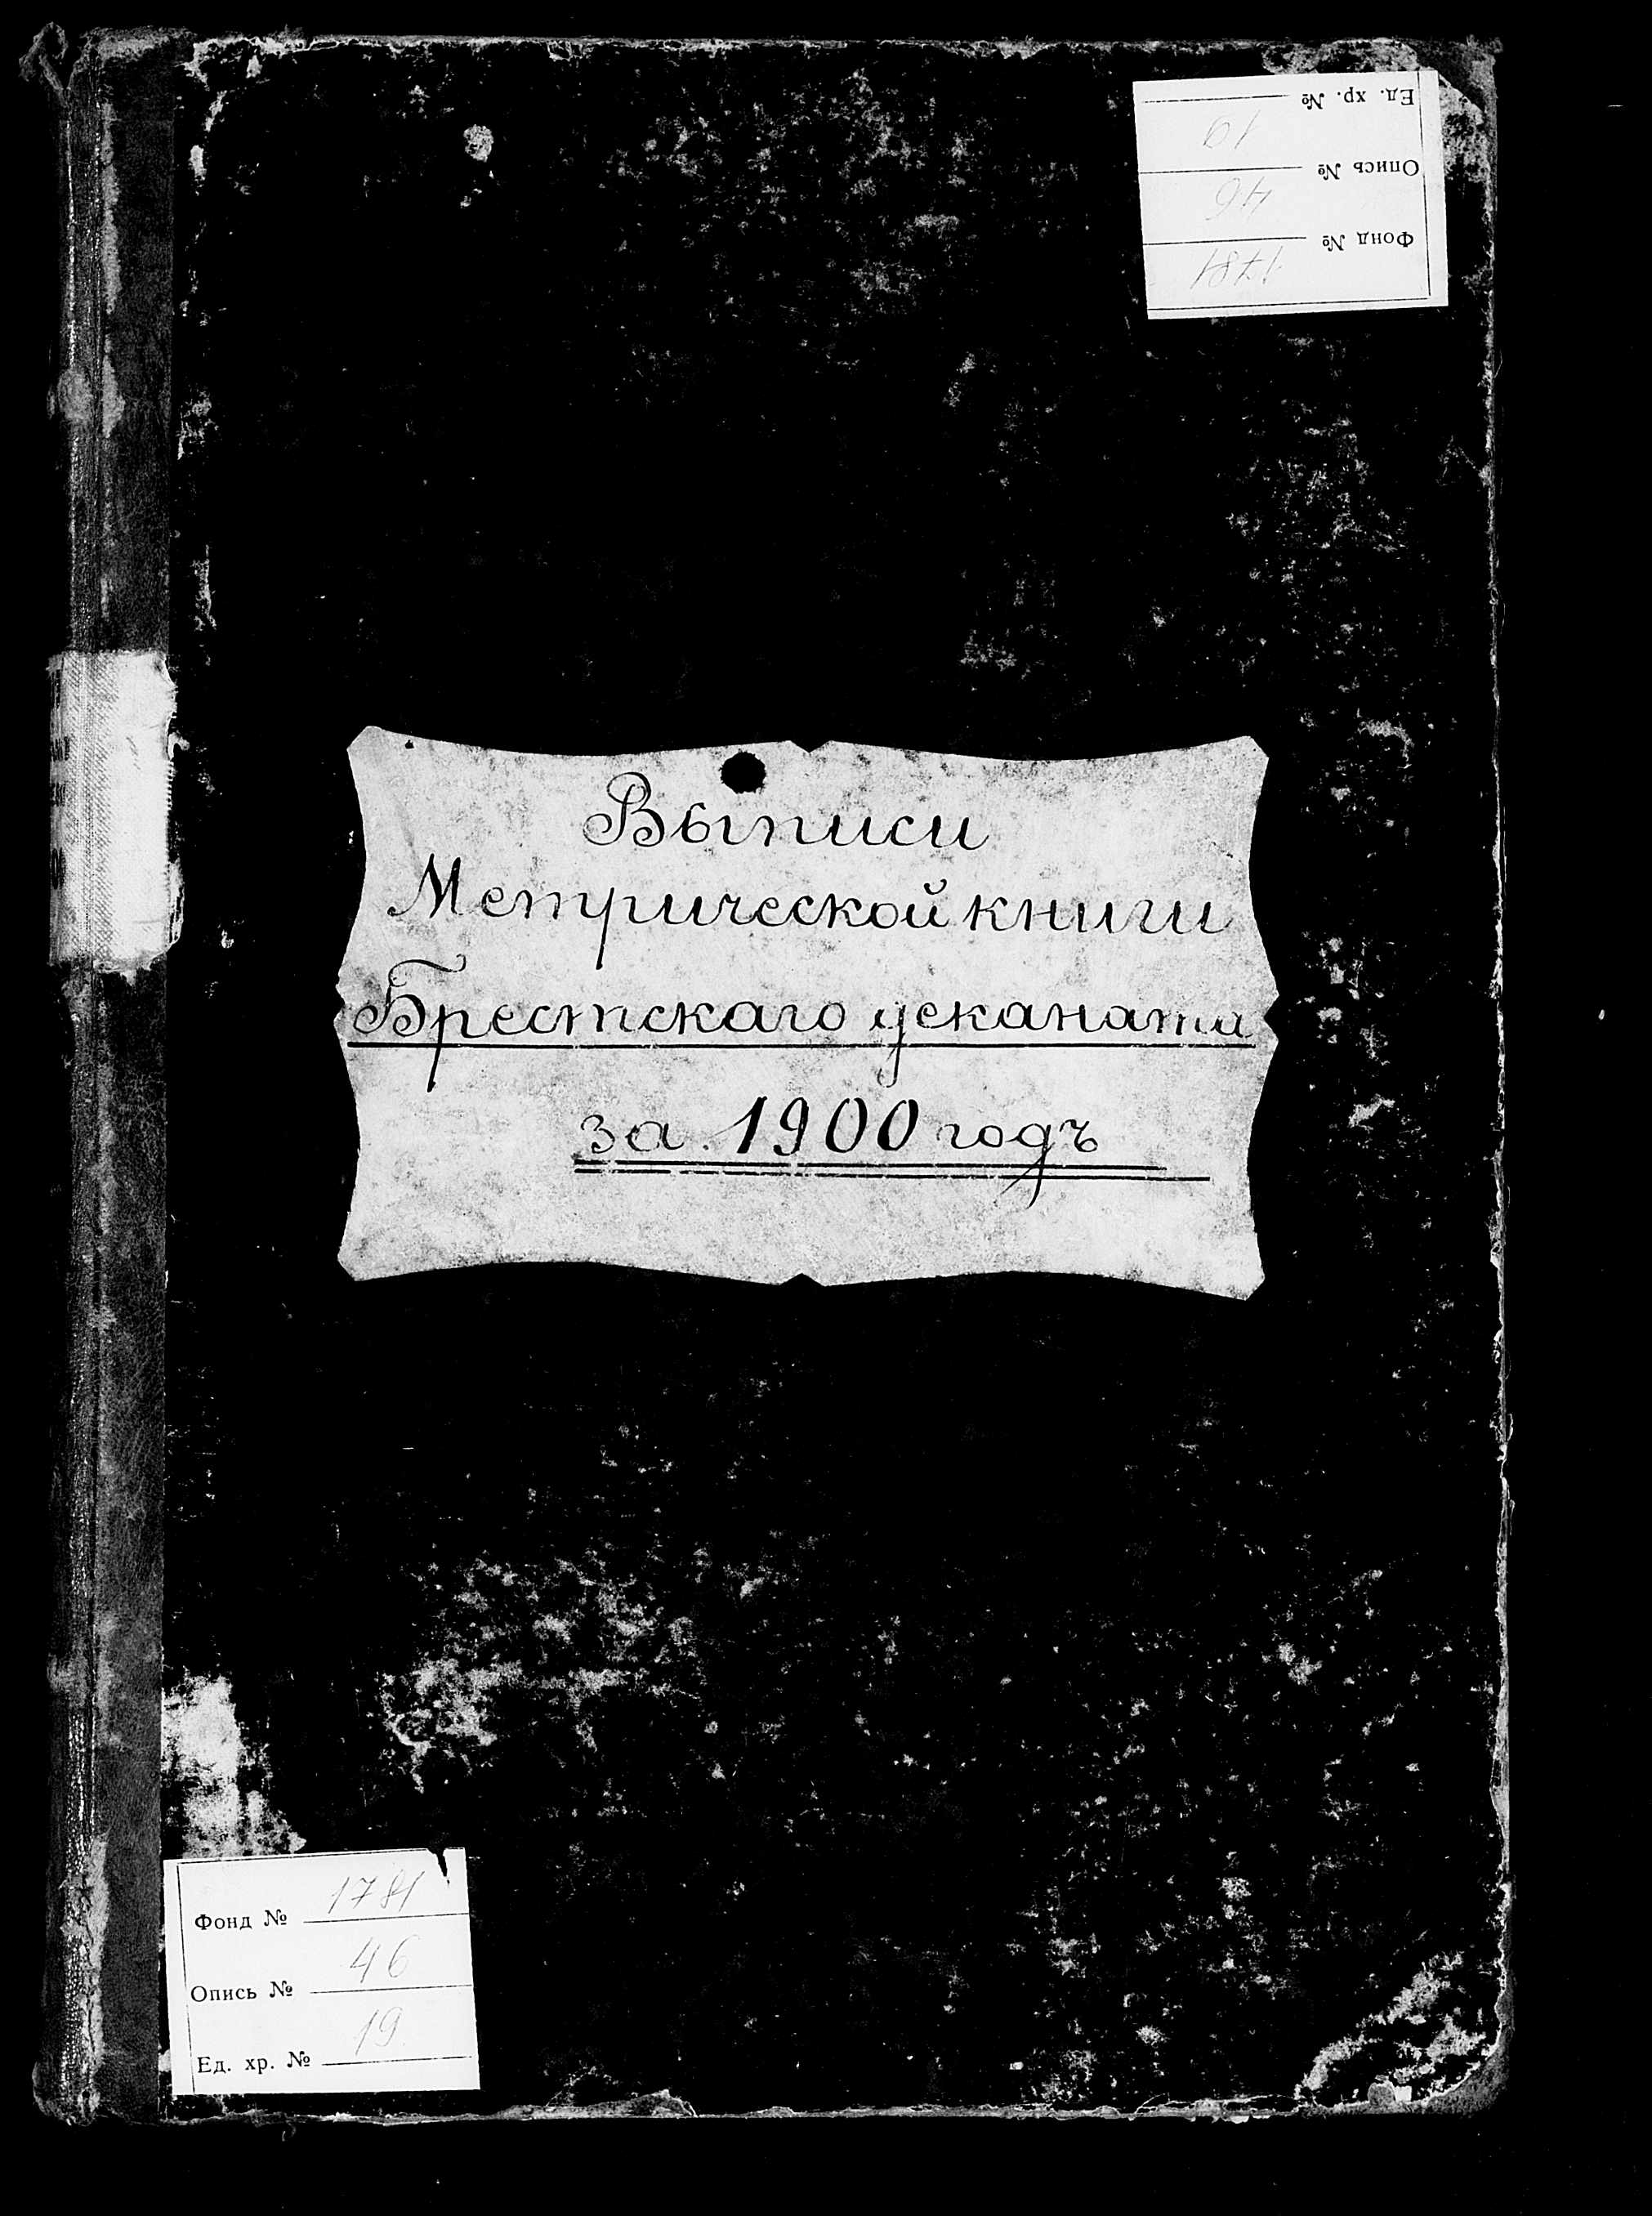 Ед. хр. № 19
Опись № 46
Фонд № 1781
Выписи
Метрической книги
Брестскаго деканата
за 1900 годъ
Фонд № 1781
Опись № 46
Ед. хр. № 19